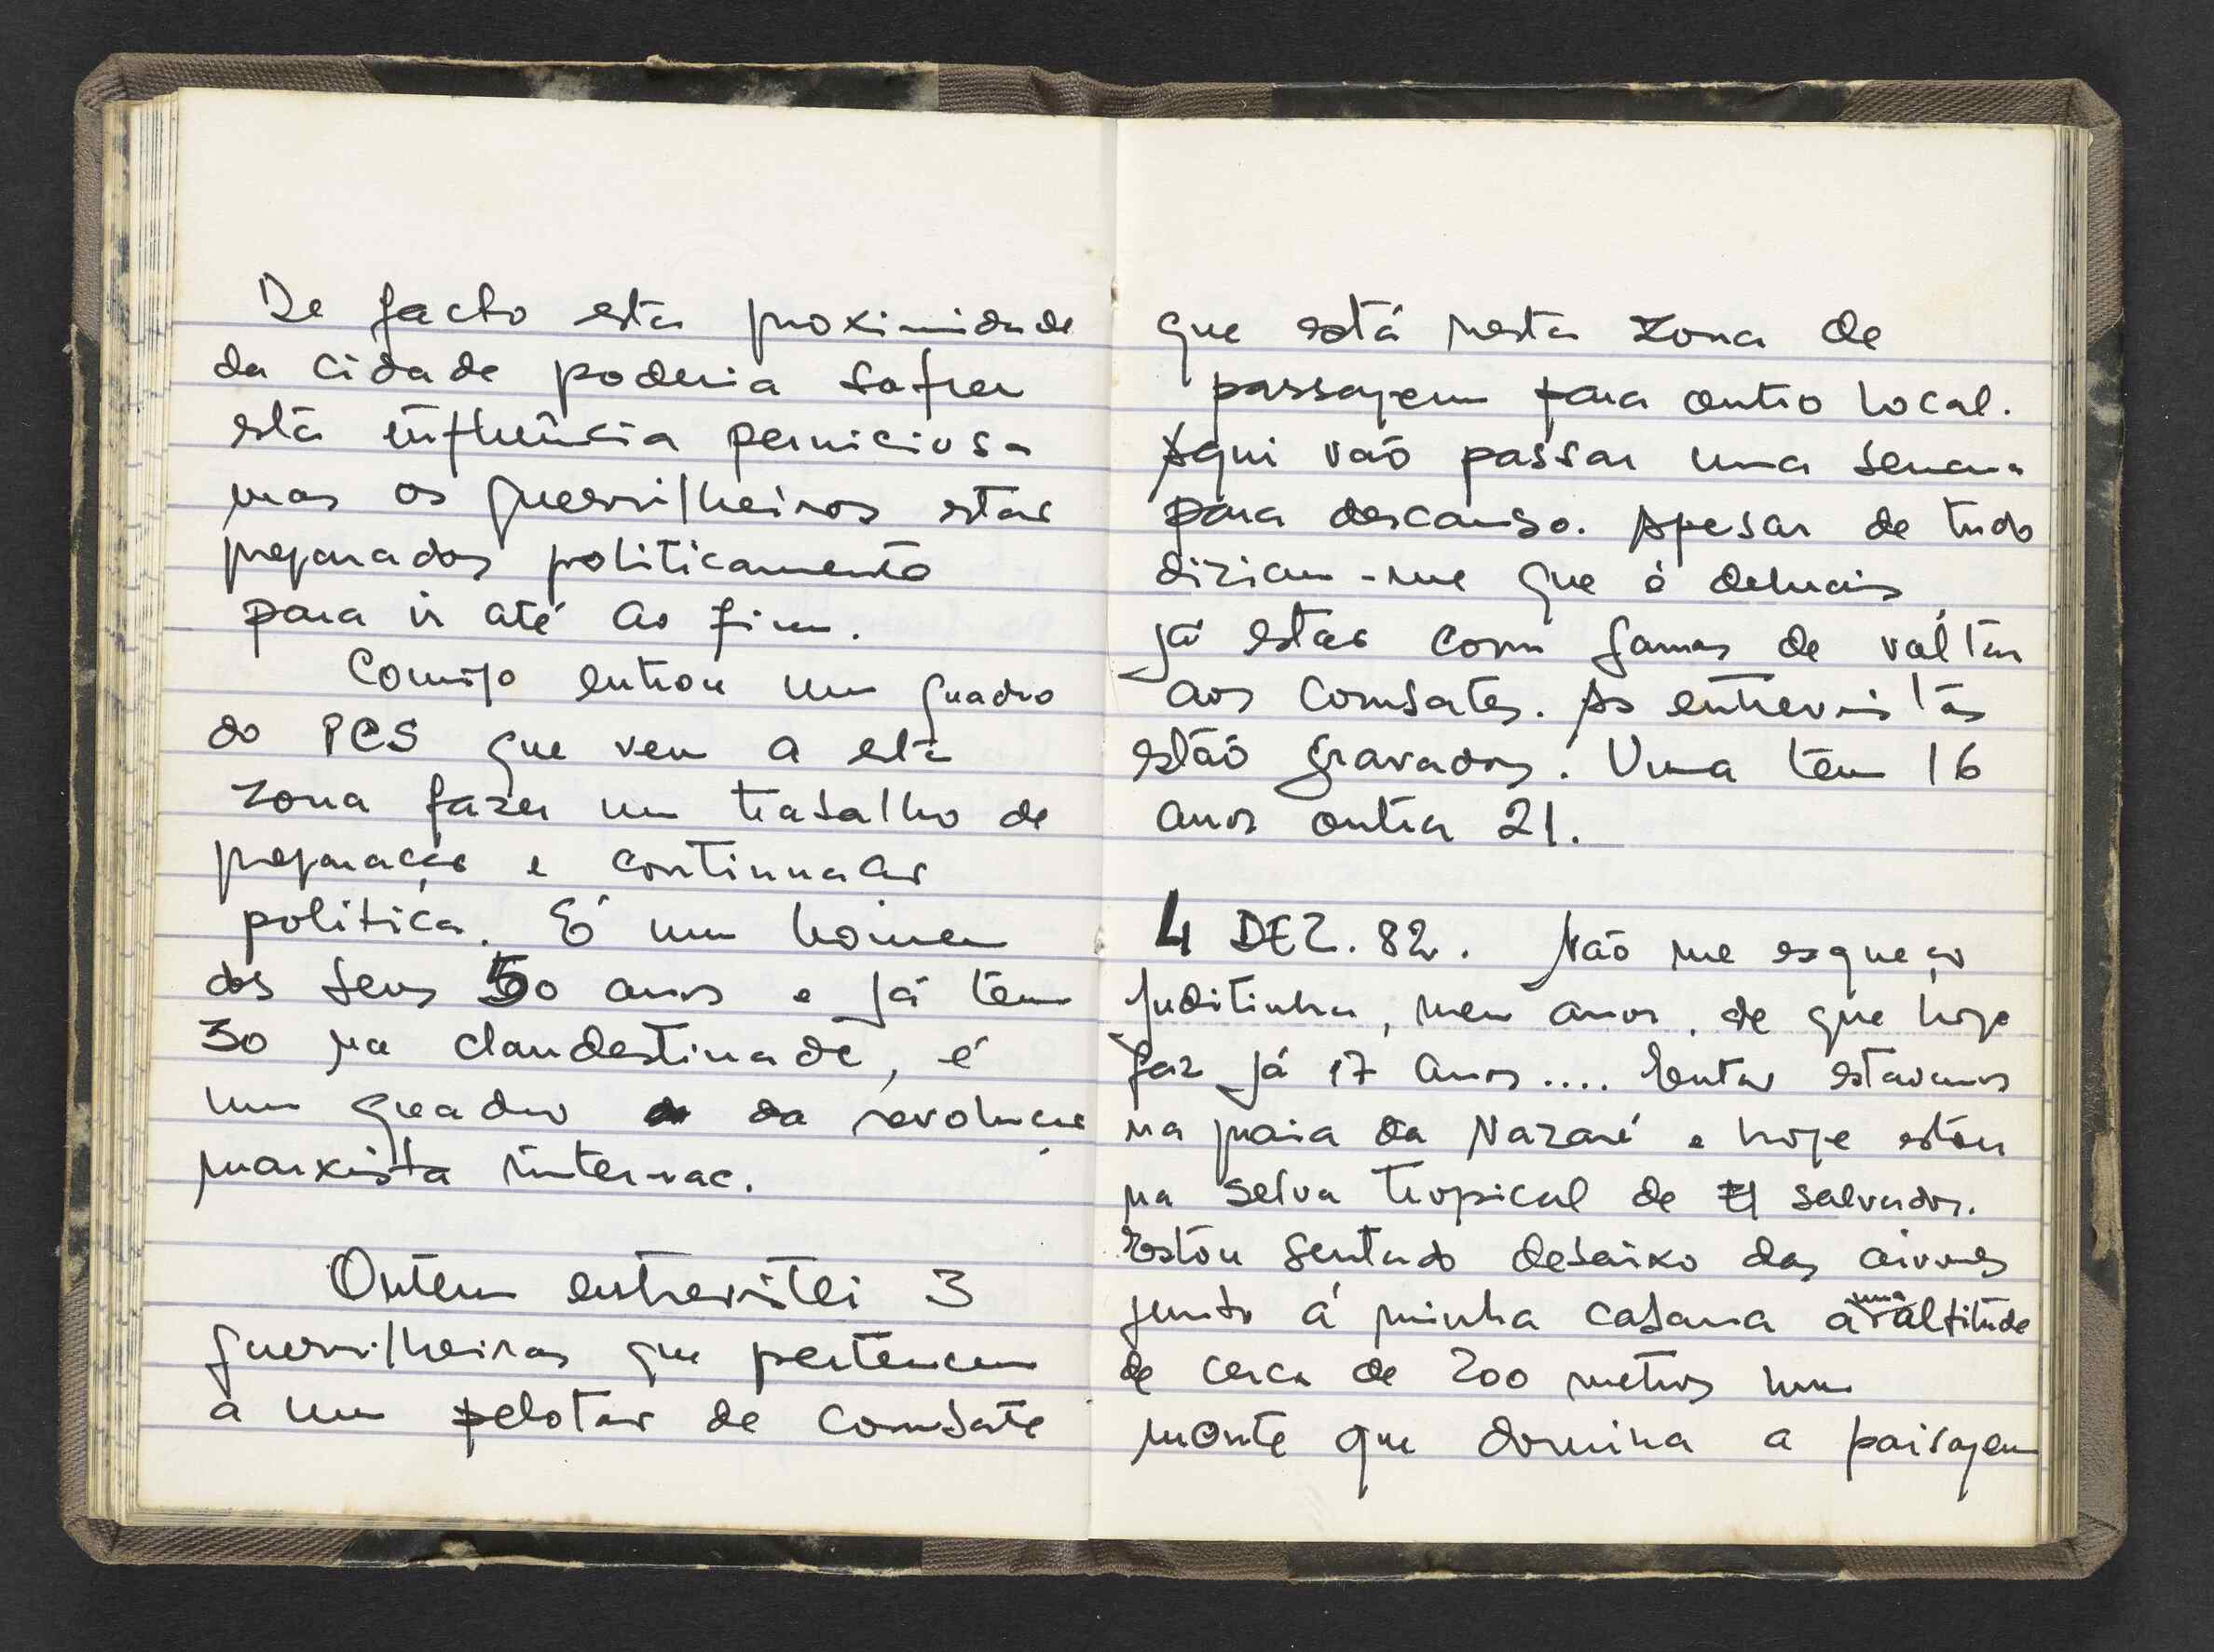 De facto esta proximidade
da cidade poderia sofrer
esta influência perniciosa
mas os guerrilheiros estão
preparados politicamente
para ir até ao fim.
Comigo entrou um quadro
do PCS que vem a esta
zona fazer um trabalho de
preparação e continuação
política. É um homem
dos seus 50 anos e já tem
30 na clandestinade, é
um quadro da revolução
marxista internac.
Ontem entrevistei 3
guerrilheiras que pertencem
a um pelotão de combate
que está nesta zona de
passagem para outro local.
Aqui vão passar uma semana
para descanso. Apesar de tudo
diziam-me que é demais
já estão com ganas de voltar
aos combates. As entrevistas
estão gravadas. Uma tem 16
anos outra 21.
4 DEZ. 82. Não me esqueço
Juditinha, meu amor, de que hoje
faz já 17 anos.... Então estavamos
na praia da Nazaré e hoje estou
na selva tropical de El Salvador.
Estou sentado debaixo das árvores
junto á minha cabana a uma altitude
de cerca de 200 metros num
monte que domina a paisagem